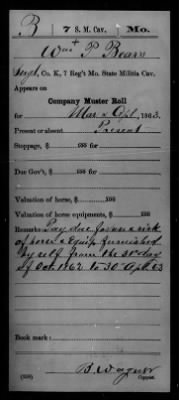 B 7 S. M. Cav. Mo.
Wm P Bears
Sergt., Co. K, 7 Reg't Mo. State Militia Cav.
Appears on
Company Muster Roll
for Mar & Apl, 1863.
Present or absent, Present
Stoppage, $ 100 for
Due Gov't, $ 100 for
Valuation of horse, $ 100
Valuation of horse equipments, $ 100
Remarks: Pay due for use & risk
of horse & Equip. furnished
by self from the 31st day
of Oct. 1862 to 30 Apl 63
Book mark:
B. Wagner
(358) Copyist.